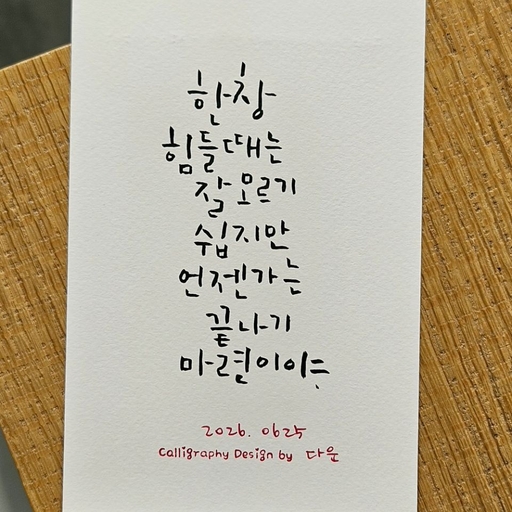 한창
힘들때는
잘 모르기
쉽지만
언젠가는
끝나기
마련이야
2026. 0625
Calligraphy Design by 다운